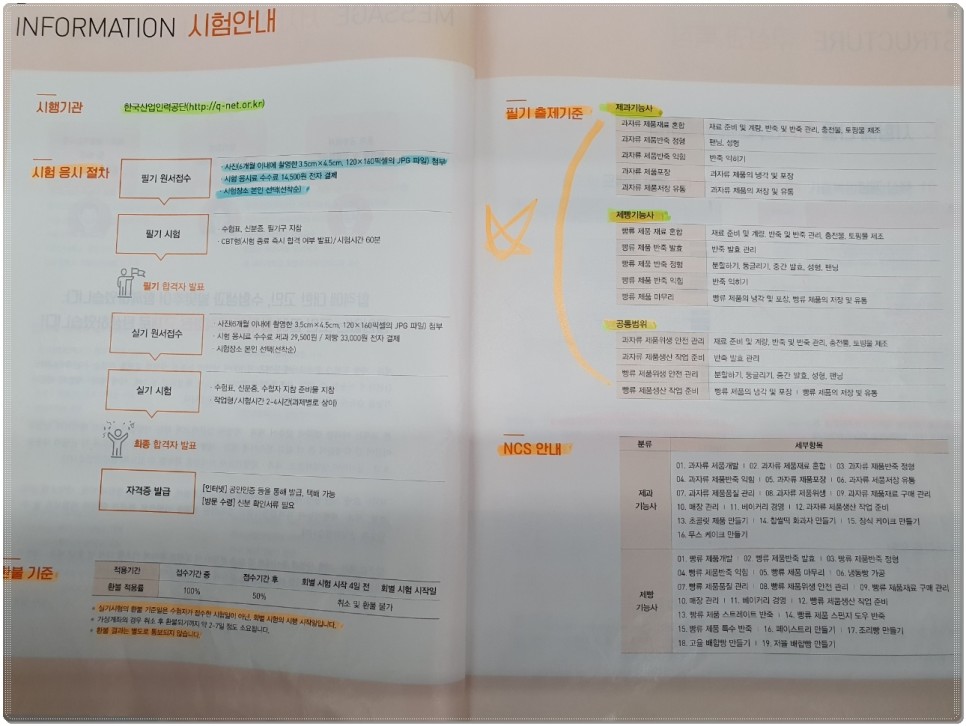 INFORMATION 시험안내
시행기관
한국산업인력공단(http://q-net.or.kr)
시험 응시 절차
필기 원서접수
· 사진(6개월 이내에 촬영한 3.5cm×4.5cm, 120×160픽셀의 JPG 파일) 첨부
· 시험 응시료 수수료 14,500원 전자 결제
· 시험장소 본인 선택(선착순)
필기 시험
· 수험표, 신분증, 필기구 지참
· CBT형(시험 종료 즉시 합격 여부 발표)/시험시간 60분
필기 합격자 발표
실기 원서접수
· 사진(6개월 이내에 촬영한 3.5cm×4.5cm, 120×160픽셀의 JPG 파일) 첨부
· 시험 응시료 수수료 제과 29,500원 / 제빵 33,000원 전자 결제
· 시험장소 본인 선택(선착순)
실기 시험
· 수험표, 신분증, 수험자 지참 준비물 지참
· 작업형/시험시간 2~4시간(과제별로 상이)
최종 합격자 발표
자격증 발급
[인터넷] 공인인증 등을 통해 발급, 택배 가능
[방문 수령] 신분 확인서류 필요
환불 기준
적용기간 접수기간 중 접수기간 후 회별 시험 시작 4일 전 회별 시험 시작일
환불 적용률 100% 50% 취소 및 환불 불가
* 실기시험의 환불 기준일은 수험자가 접수한 시험일이 아닌, 회별 시험의 시행 시작일입니다.
* 가상계좌의 경우 취소 후 환불되기까지 약 2~7일 정도 소요됩니다.
* 환불 결과는 별도로 통보되지 않습니다.
필기 출제기준
제과기능사
과자류 제품재료 혼합 재료 준비 및 계량, 반죽 및 반죽 관리, 충전물, 토핑물 제조
과자류 제품반죽 정형 팬닝, 성형
과자류 제품반죽 익힘 반죽 익히기
과자류 제품포장 과자류 제품의 냉각 및 포장
과자류 제품저장 유통 과자류 제품의 저장 및 유통
제빵기능사
빵류 제품 재료 혼합 재료 준비 및 계량, 반죽 및 반죽 관리, 충전물, 토핑물 제조
빵류 제품 반죽 발효 반죽 발효 관리
빵류 제품 반죽 정형 분할하기, 둥글리기, 중간 발효, 성형, 팬닝
빵류 제품 반죽 익힘 반죽 익히기
빵류 제품 마무리 빵류 제품의 냉각 및 포장, 빵류 제품의 저장 및 유통
공통범위
과자류 제품위생 안전 관리 재료 준비 및 계량, 반죽 및 반죽 관리, 충전물, 토핑물 제조
과자류 제품생산 작업 준비 반죽 발효 관리
빵류 제품위생 안전 관리 분할하기, 둥글리기, 중간 발효, 성형, 팬닝
빵류 제품생산 작업 준비 빵류 제품의 냉각 및 포장 | 빵류 제품의 저장 및 유통
NCS 안내
분류 세부항목
제과
기능사
01. 과자류 제품개발 | 02. 과자류 제품재료 혼합 | 03. 과자류 제품반죽 정형
04. 과자류 제품반죽 익힘 | 05. 과자류 제품포장 | 06. 과자류 제품저장 유통
07. 과자류 제품품질 관리 | 08. 과자류 제품위생 | 09. 과자류 제품재료 구매 관리
10. 매장 관리 | 11. 베이커리 경영 | 12. 과자류 제품생산 작업 준비
13. 초콜릿 제품 만들기 | 14. 찹쌀떡 화과자 만들기 | 15. 장식 케이크 만들기
16. 무스 케이크 만들기
제빵
기능사
01. 빵류 제품개발 | 02. 빵류 제품반죽 발효 | 03. 빵류 제품반죽 정형
04. 빵류 제품반죽 익힘 | 05. 빵류 제품 마무리 | 06. 냉동빵 가공
07. 빵류 제품품질 관리 | 08. 빵류 제품위생 안전 관리 | 09. 빵류 제품재료 구매 관리
10. 매장 관리 | 11. 베이커리 경영 | 12. 빵류 제품생산 작업 준비
13. 빵류 제품 스트레이트 반죽 | 14. 빵류 제품 스펀지 도우 반죽
15. 빵류 제품 특수 반죽 | 16. 페이스트리 만들기 | 17. 조리빵 만들기
18. 고율 배합빵 만들기 | 19. 저율 배합빵 만들기